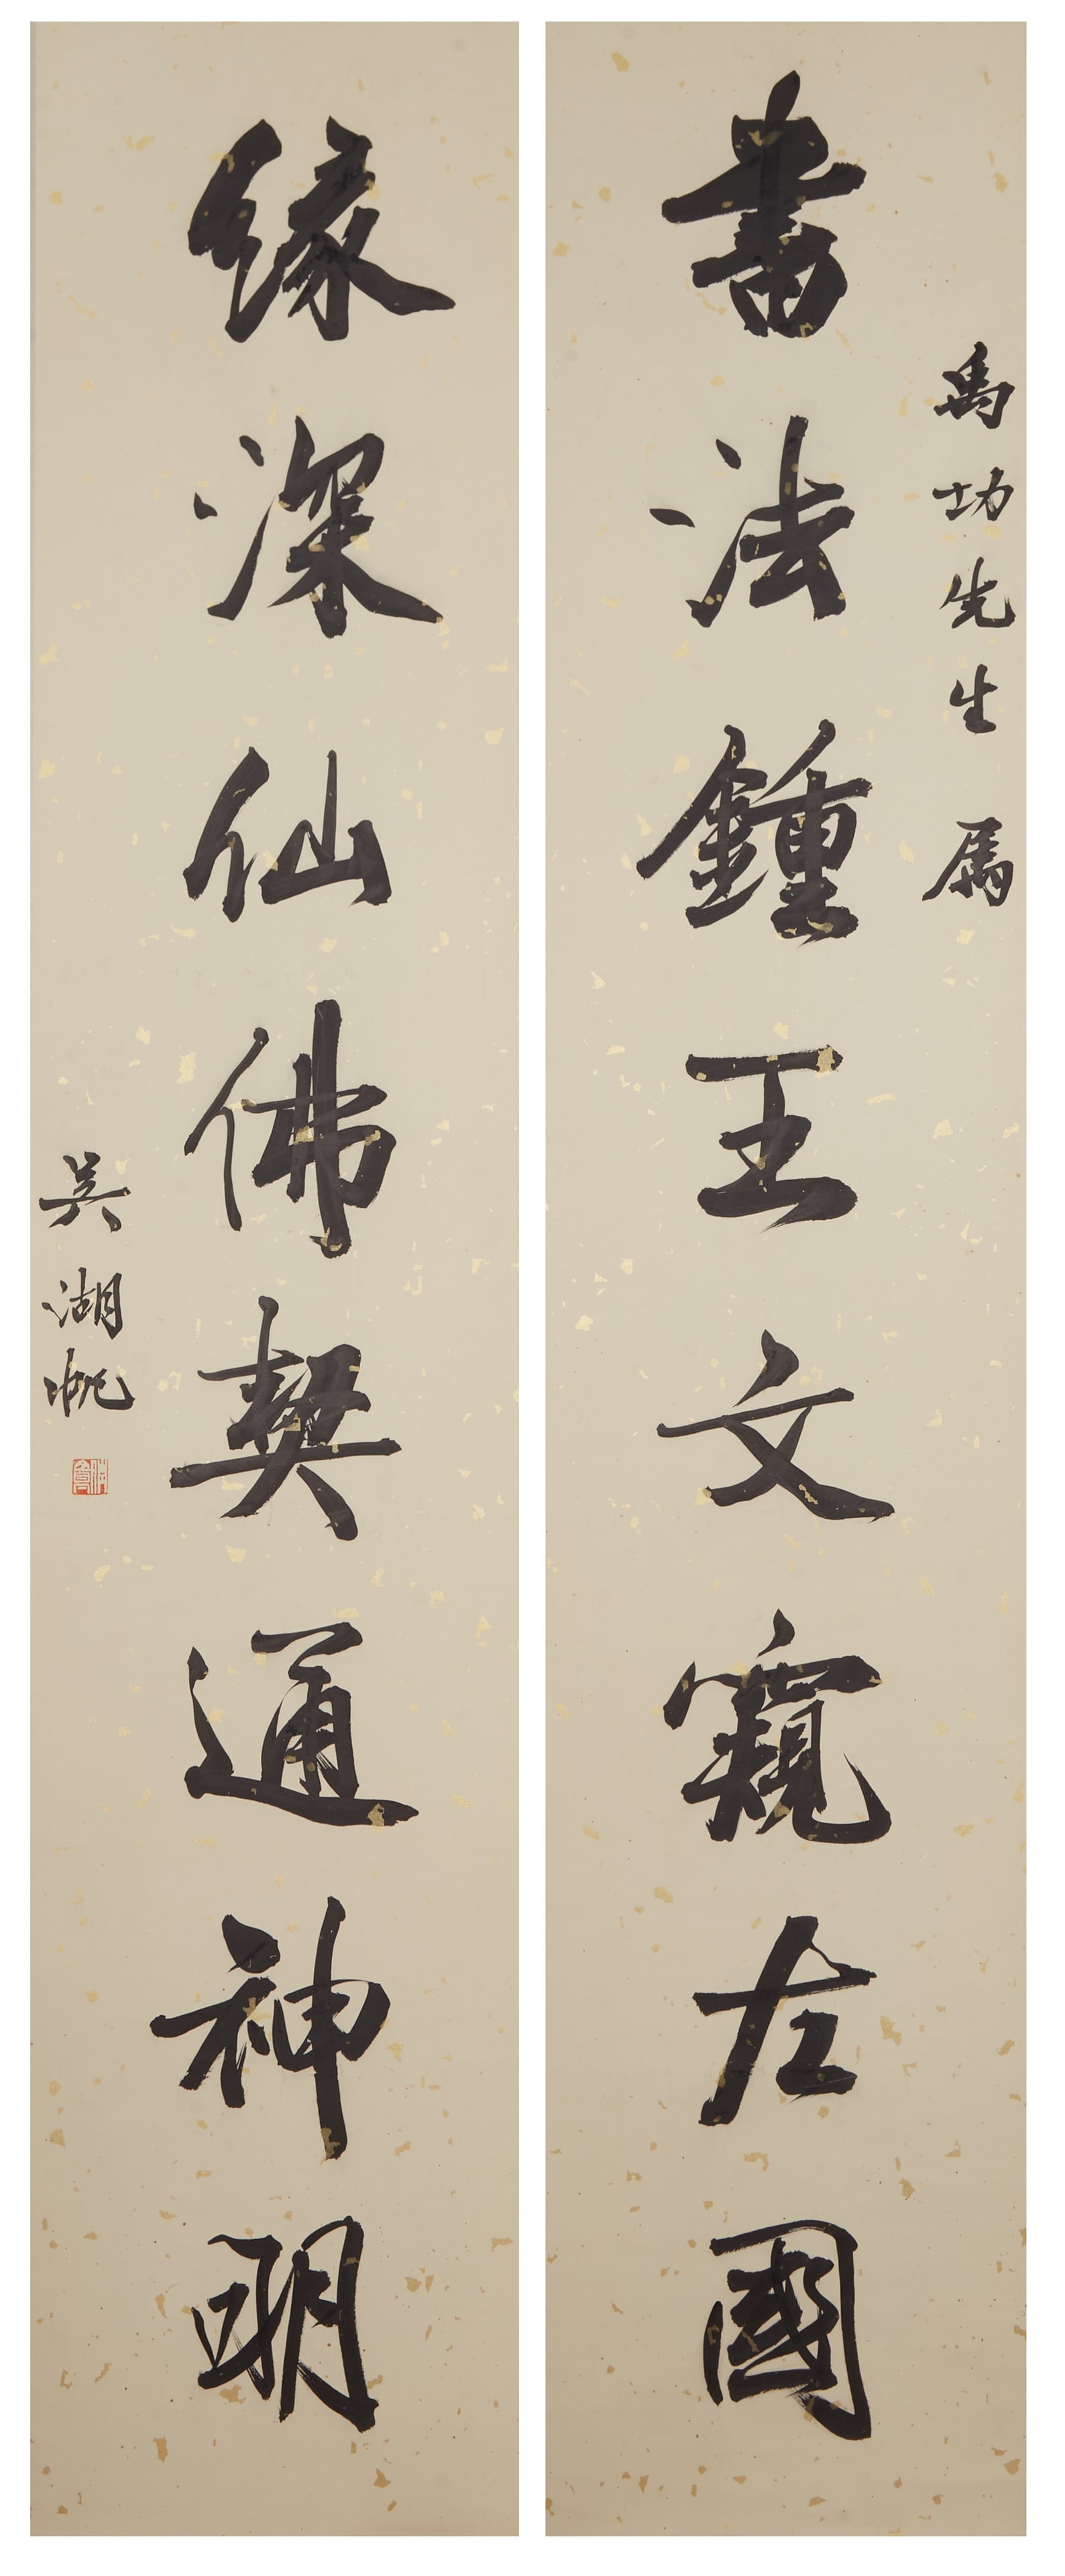 禹功先生属
書法鍾王文窺左國
緣深仙佛契通神明
吴湖帆